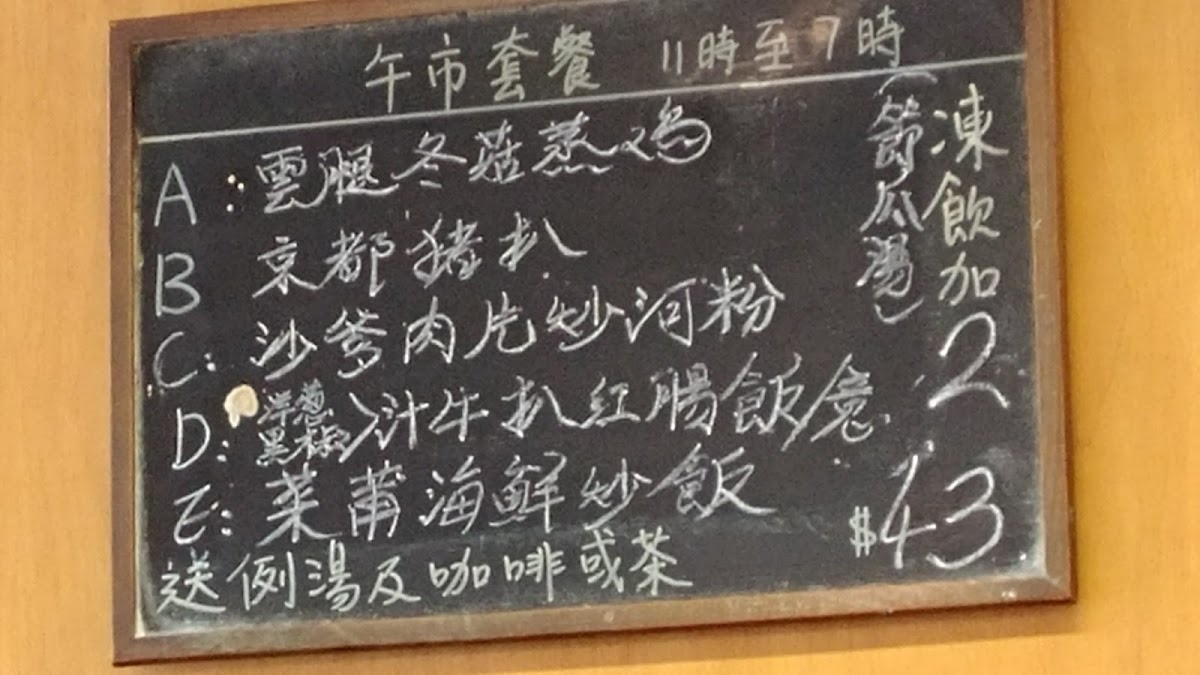 午市套餐 11時至7時
A: 雲腿冬菇蒸鸡
B 京都猪扒
C: 沙爹肉片炒河粉
D: 洋葱黑椒汁牛扒红腸飯/意
E: 菜莆海鮮炒飯
送例湯及咖啡或茶
(節瓜湯)
凍飲加2
$43